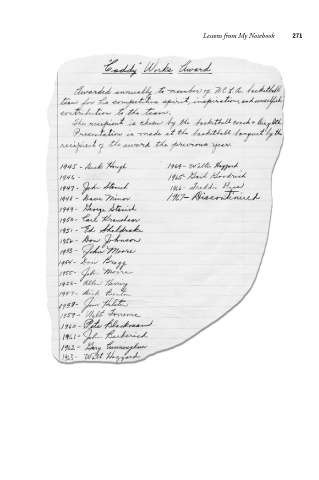 Lessons from My Notebook 271
"Caddy" Works Award
Awarded annually to member of U.C.L.A. basketball
team for his competitive spirit, inspiration, and unselfish
contribution to the team.
The recipient is chosen by the basketball coach
Presentation is made at the basketball banquet by the
recipient of the award the previous year.
1945 - Dick Hough
1946 -
1947 - John Stanich
1948 - Dave Minor
1949 - George Stanich
1950 - Carl Kraushaar
1951 - Ed Sheldrake
1952 - Don Johnson
1953 - John Moore
1954 - Don Bragg
1955 - John Moore
1956 - Allen Herring
1957 - Dick Banton
1958 - Jim Halsten
1959 - Walt Torrence
1960 - Pete Blackman
1961 - John Berberich
1962 - Gary Cunningham
1963 - Walt Hazzard
1964 - Walter Hazzard
1965 - Gail Goodrich
1966 - Freddie Goss
1967 - Discontinued